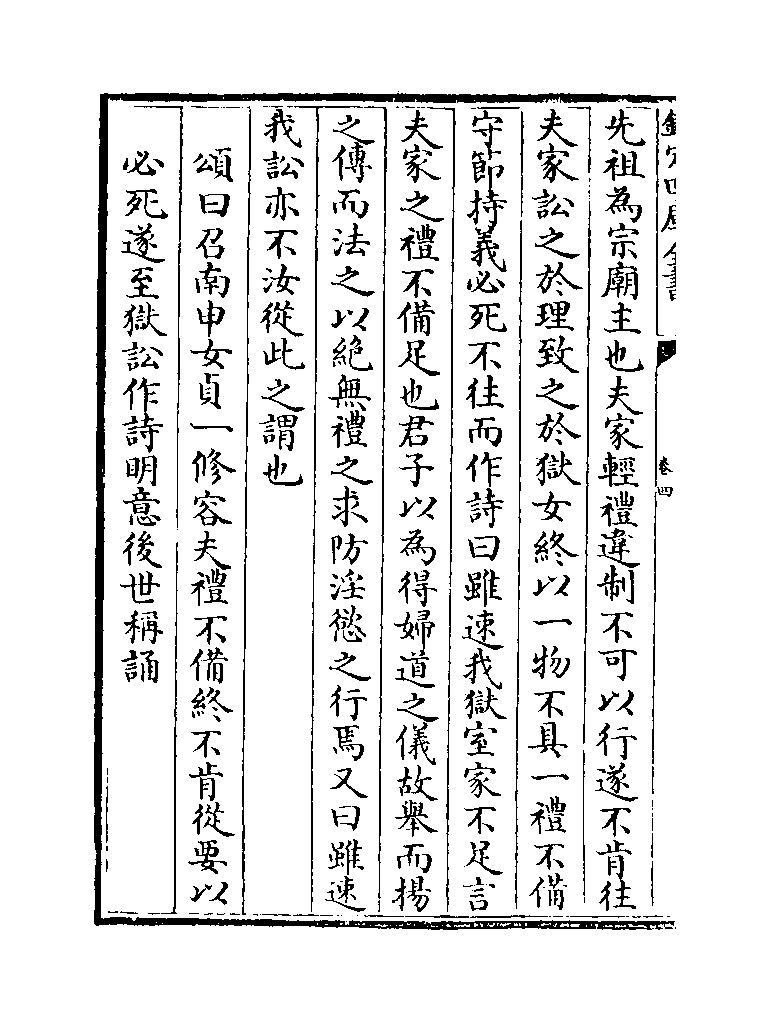 欽定四庫全書
卷四
先祖為宗廟主也夫家輕禮違制不可以行遂不肯往
夫家訟之於理致之於獄女終以一物不具一禮不備
守節持義必死不往而作詩曰雖速我獄室家不足言
夫家之禮不備足也君子以為得婦道之儀故舉而揚
之傳而法之以絶無禮之求防淫慾之行焉又曰雖速
我訟亦不汝從此之謂也
頌曰召南申女貞一修容夫禮不備終不肯從要以
必死遂至獄訟作詩明意後世稱誦